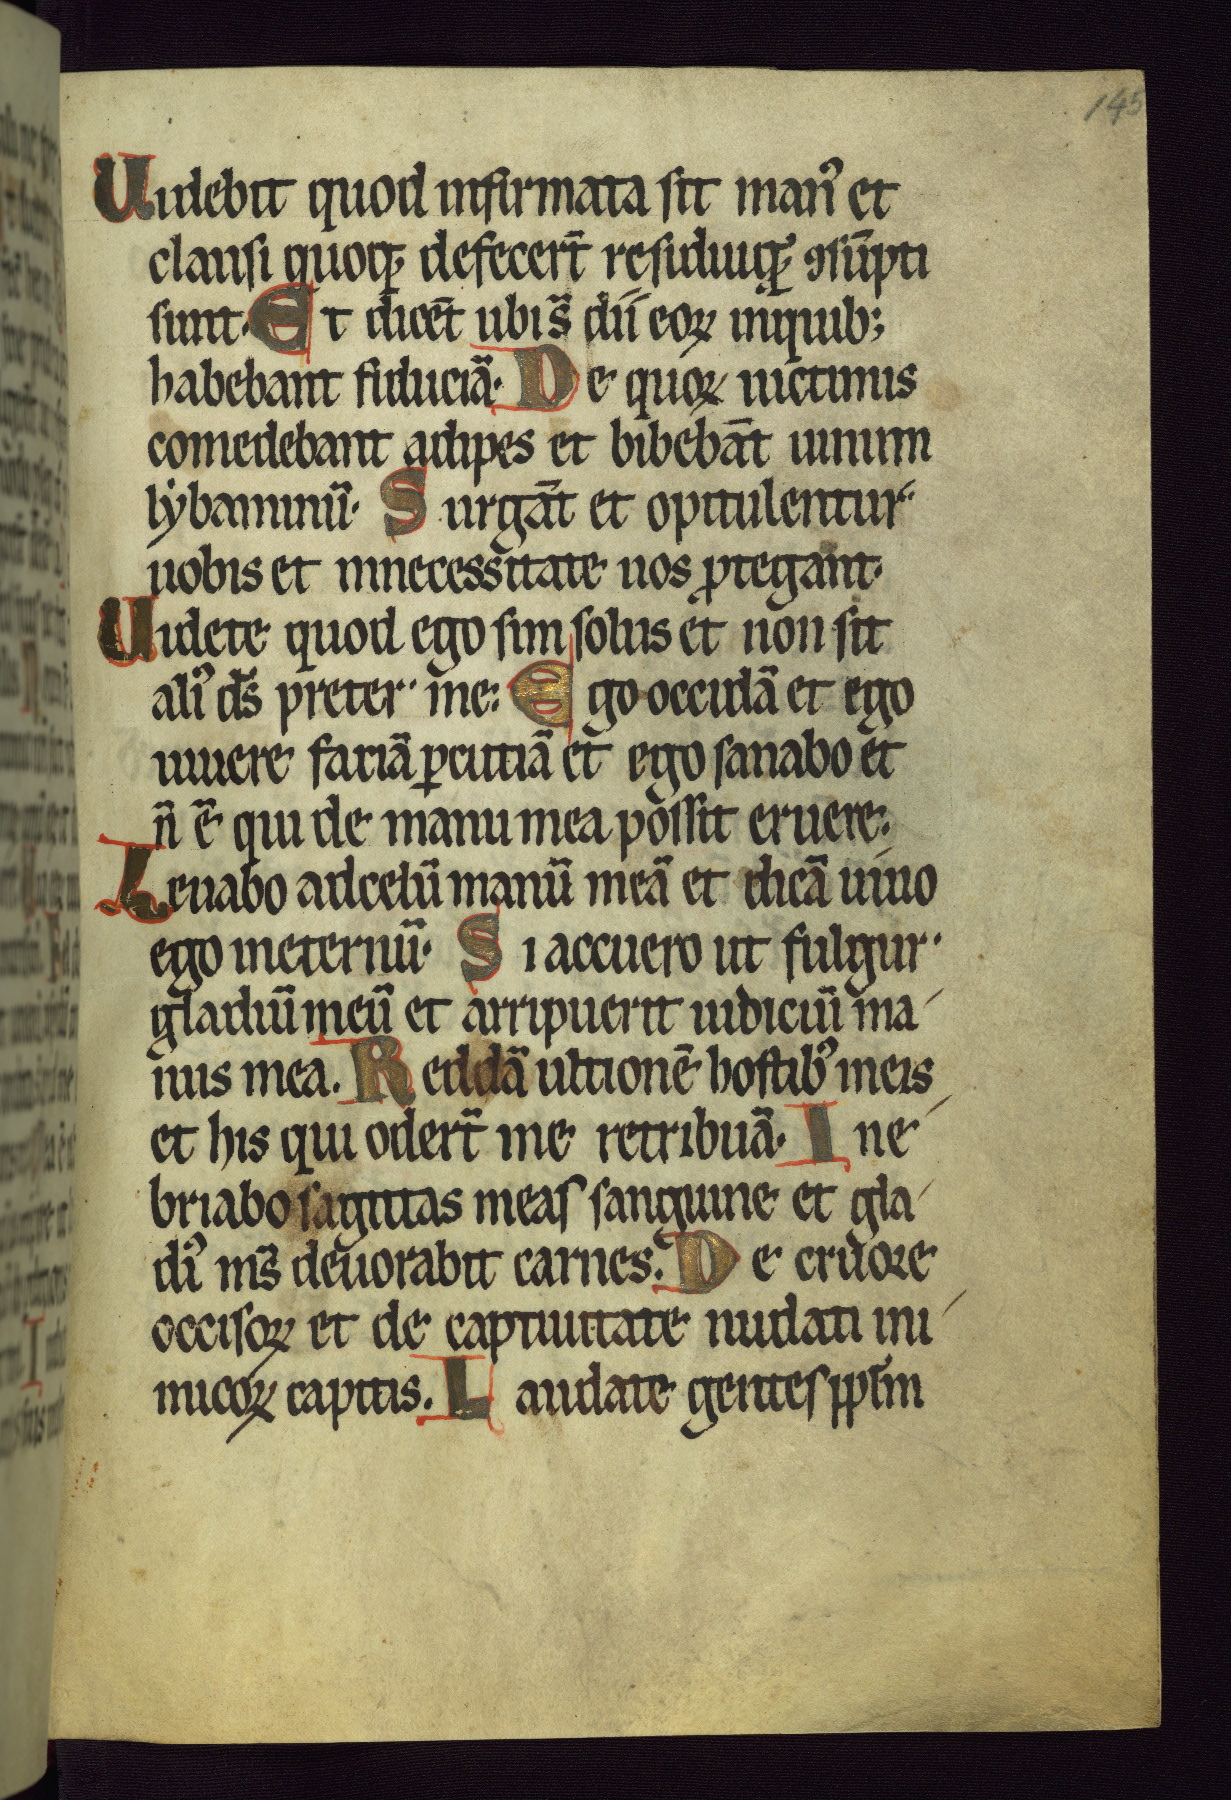 145
Uidebit quod infirmata sit manꝰ et
clausi quoqꝫ defecer̄t residuiqꝫ ꝯsūpti
sunt. Et dicēt ubi s̄ dii eoꝝ inquibꝫ
habebant fiduciā. De quoꝝ uictimis
comedebant adipes et bibebāt uinum
lybaminū. Surgāt et opitulentur
uobis et innecessitate uos ꝓtegant.
Uidete quod ego sim solus et non sit
aliꝰ ds̄ preter me: Ego occidā et ego
uiuere faciā ꝑcutiā et ego sanabo et
n̄ ē qui de manu mea possit eruere.
Leuabo adcelū manū meā et dicā uiuo
ego ineternū. Si accuero ut fulgur
gladiū meū et arripuerit iudiciū ma-
nus mea. Reddā ultionē hostibꝰ meis
et his qui oder̄t me retribuā. Ine-
briabo sagittas meas sanguine et gla-
diꝰ ms̄ deuorabit carnes. De cruore
occisoꝝ et de captiuitate nudati ini-
micoꝝ capitis. Laudate gentes pplm̄